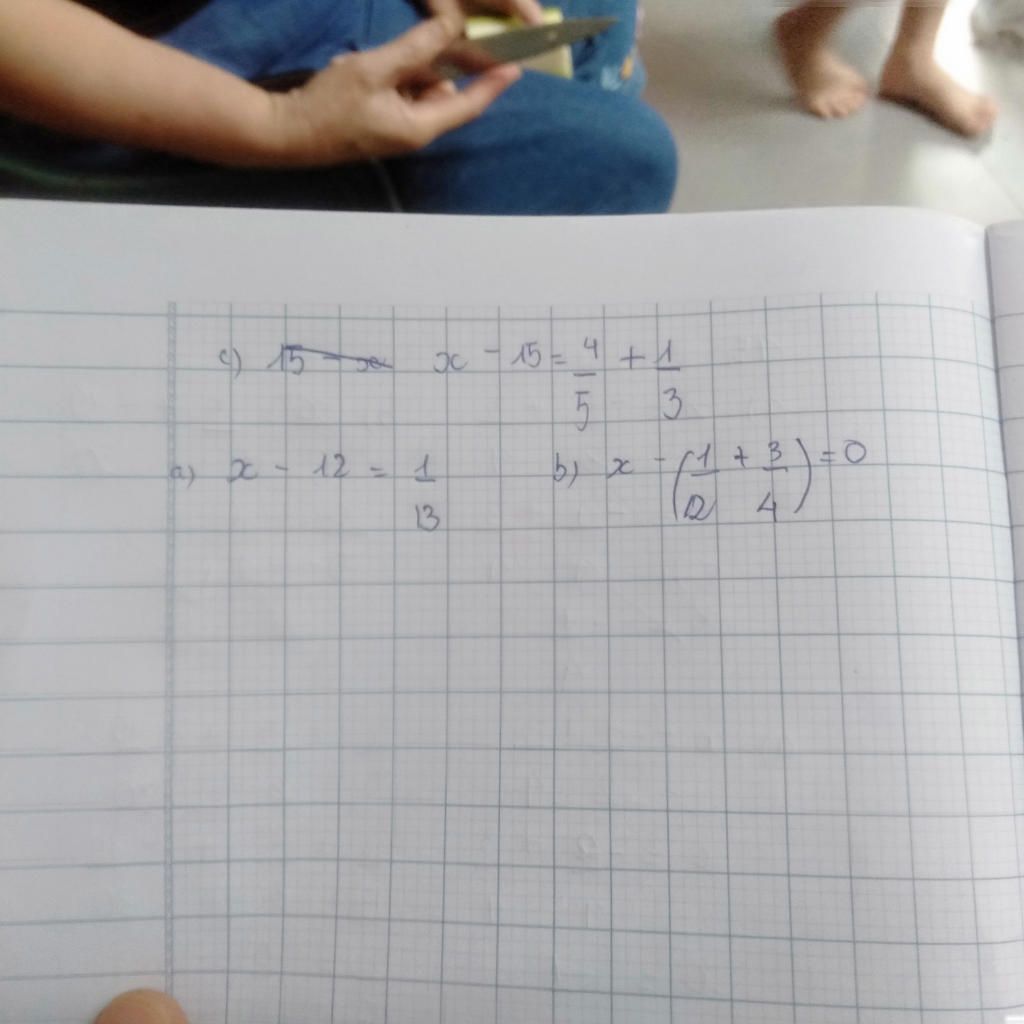 c) 15 - x x - 15 = 4/5 + 1/3
a) x - 12 = 1/13 b) x - (1/12 + 3/4) = 0